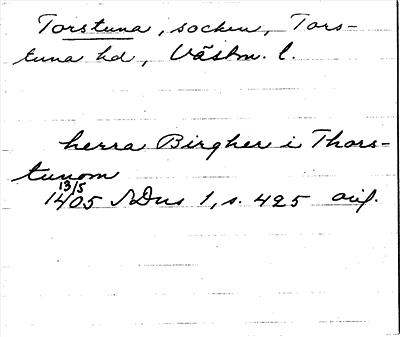 Torstuna, socken, Tors-
tuna hd, Västm. l.
herra Birgher i Thors-
tunom
13/5
1405 SDns 1, s. 425 avs.